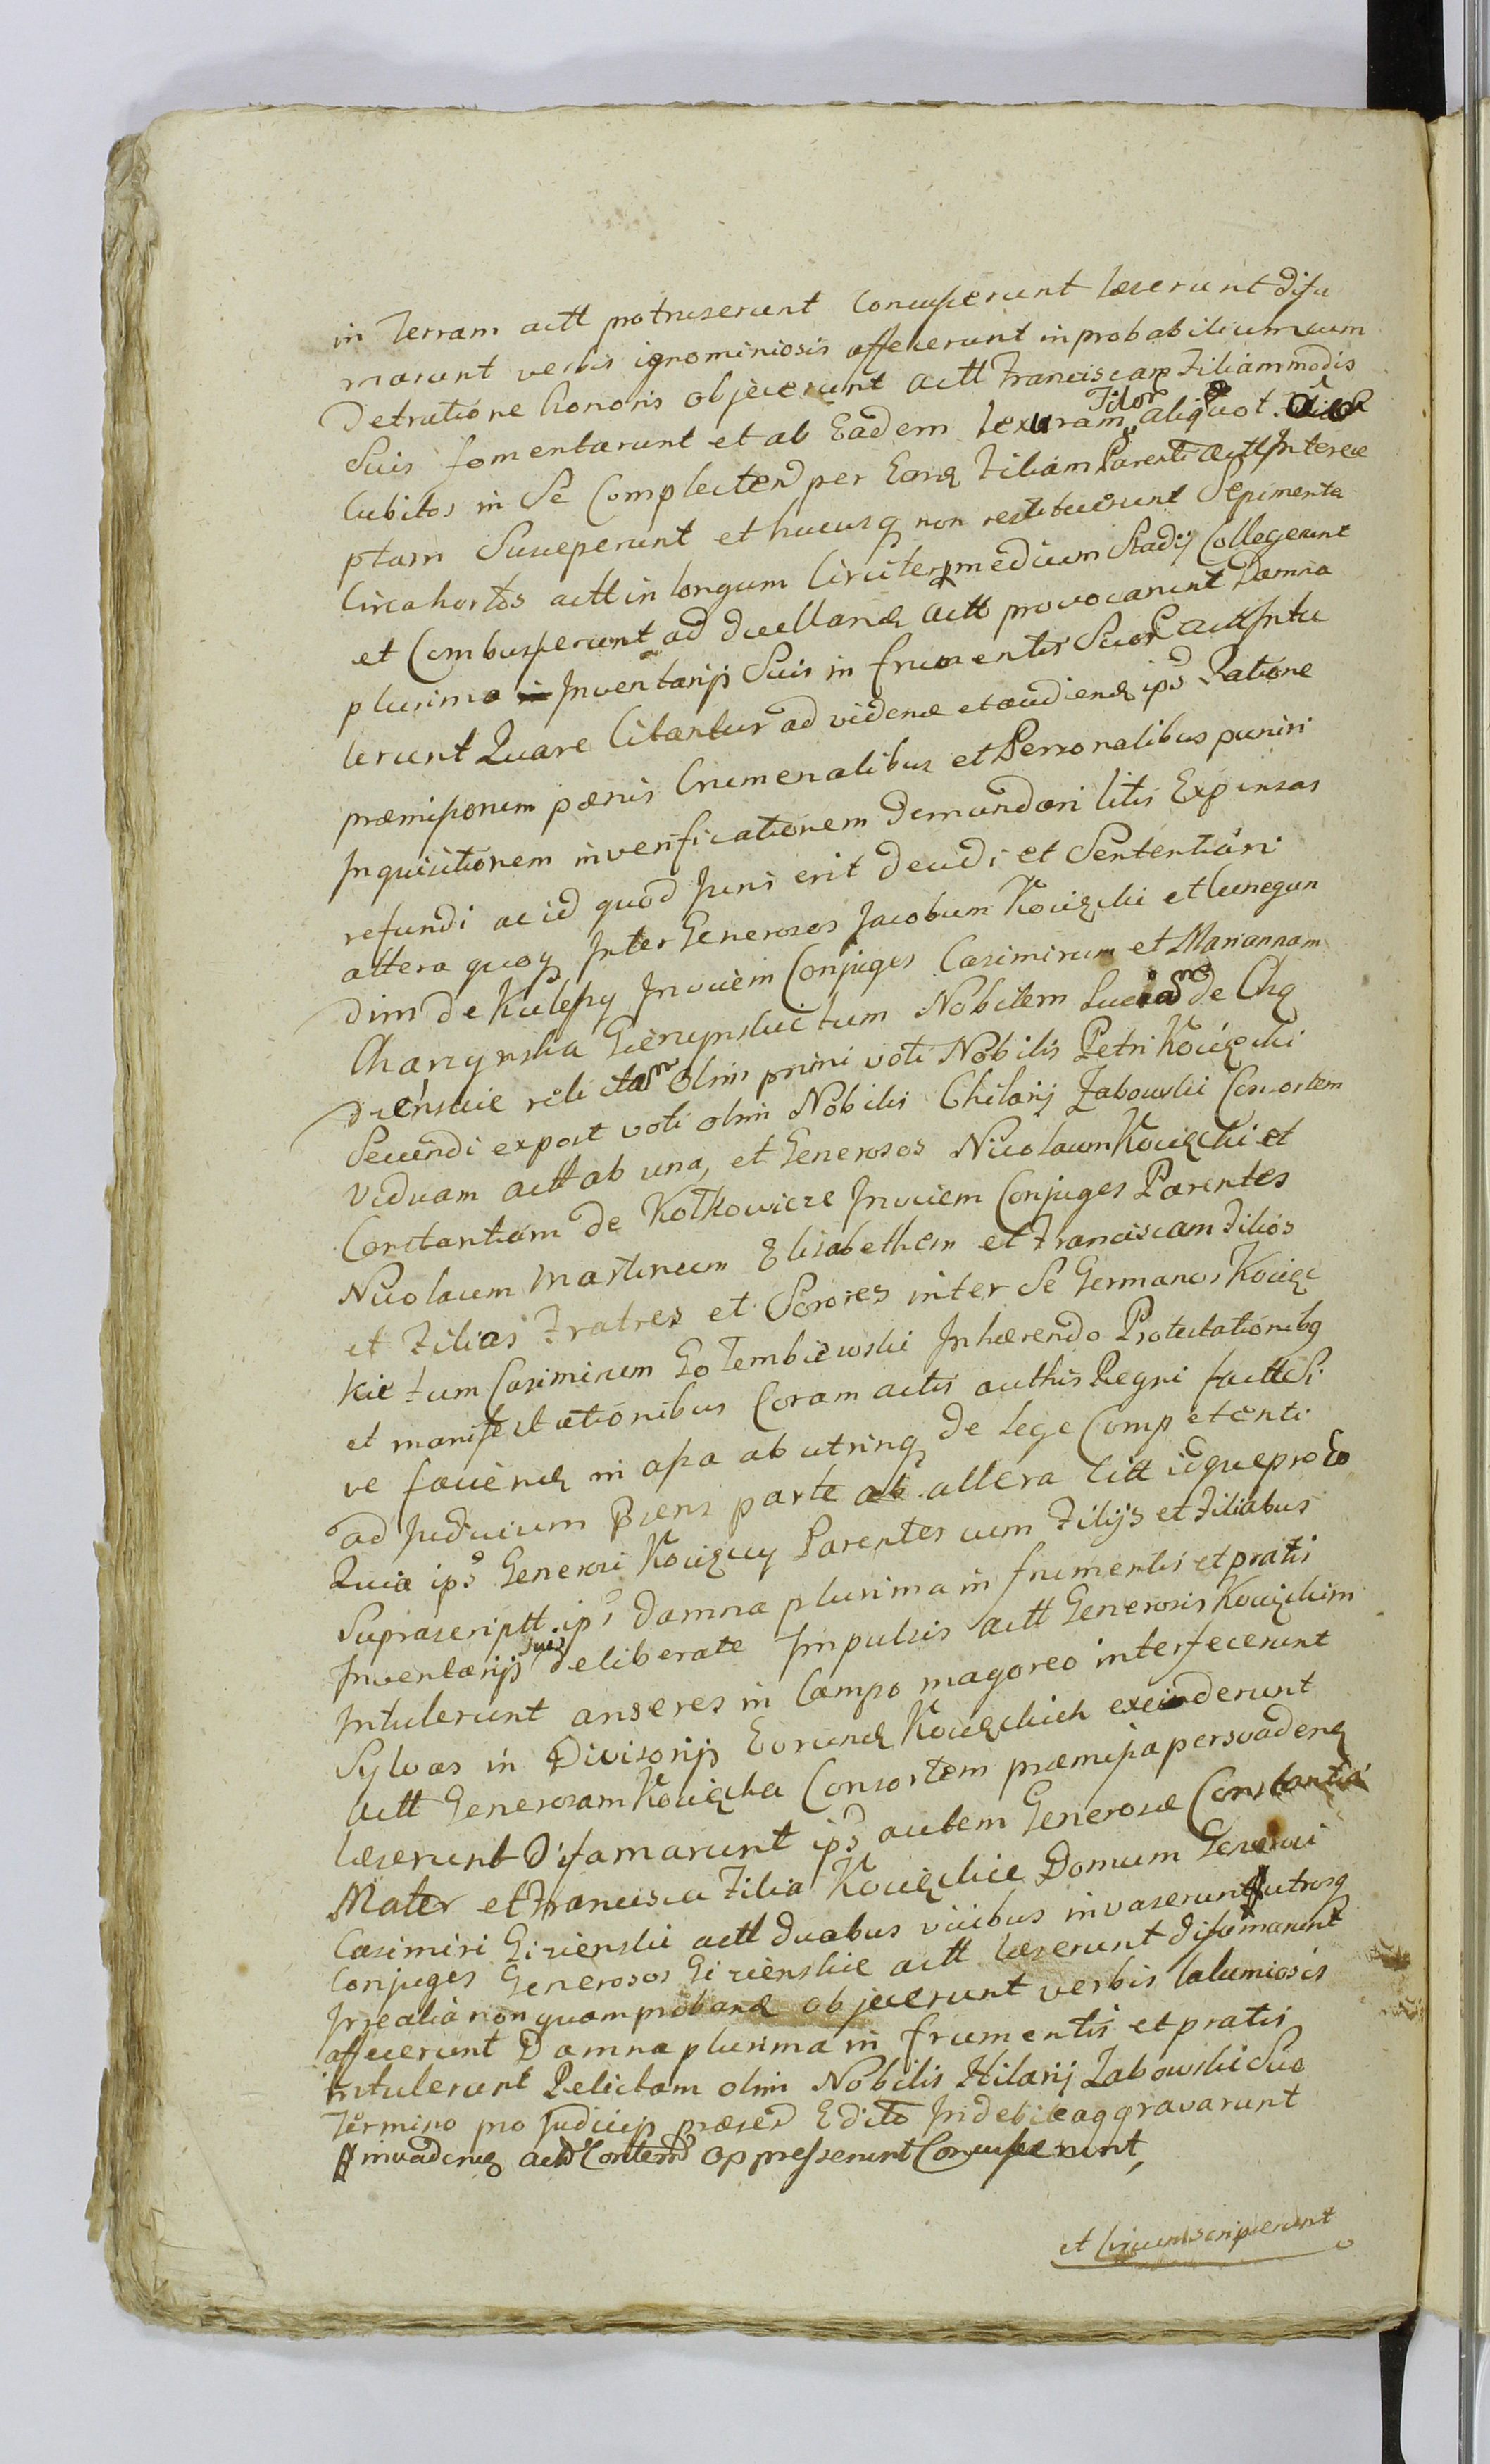 in Terram actt protruserunt Concusserunt læserunt difa
marunt verbis ignominiosis affecerunt inprobabilium cum
Detractione honoris objecerunt actt Franciscam Filiam modis
Suis fomentarunt et ab Eadem texturam Filor aliquot
Cubitos in Se Complecten per Eanq Filiam Parenti actt Interce
ptam Susceperunt et hucusq non restituerunt Sepimenta
Circa hortos actt in longum Circiter medium Stadij Collegerunt
et Combusserunt ad duellanq actt provocarunt Damna
plurima Inventarijs Suis in frumentis Suor actt Intu
lerunt Quare Citantur ad videnq et audienq ips Ratione
præmissorum pœnis Criminalibus et Personalibus puniri
Inquisitionem in verificationem Demandari litis Expensas
refundi ac id quod Juris erit Decidi et Sententiari
altera quoq Inter Generosos Jacobum Kocięcki et Cunegun
dim de Kulessy Invicem Conjuges Casimirum et Mariannam
Charzynska Gierzynskie tum Nobilem de Chą
dzenskie relictam Olim primi voti Nobilis Petri Kocięcki
Secundi expost voti olim Nobilis Chilarij Zabowski Consortem
Viduam actt ab una, et Generosos Nicolaum Kocięcki et
Constantiam de Kotkowicze Invicem Conjuges Parentes
Nicolaum Martinum Elisabetham et Franciscam Filios
et Filias Fratres et Sorores inter Se Germanos Kocięc
kie tum Casimirum Gołembiewski Inhærendo Protestationibq
et manifestationibus Coram actis authis Regni factt Si
ve facienq in assa ab utrinq de lege Competenti
ad Judicium Præns parte ab altera Citt idque pro Eo
Quia ips Generosi Kocięccy Parentes cum Filijs et Filiabus
Suprascriptt ips Damna plurima in frumentis et pratis
Inventarijs suis deliberate Impulsis actt Generosis Kocięckim
Intulerunt anseres in Campo magoreo interfecerunt
Sylvas in Divisorijs Eorunq Kocięckich exciderunt
actt Generosam Kocięcka Consortem præmissa persvadenq
læserunt Difamarunt ips autem Generosæ Constantia
Mater et Francisca Filia Kocięckie Domum Generosi
Casimiri Girzenski actt duabus vicibus invaserunt utrosq
Conjuges Generosos Girzenskie actt læserunt Difamarunt
Irrealia nonquam probanq objecerunt verbis Calumiosis
affecerunt Damna plurima in frumentis et pratis
intulerunt Relictam olim Nobilis Hilarij Zabowski Suo
Termino pro Judicijs præsed Edito Indebite aggravarunt
invadenq actt Contem oppresserunt Concusserunt,
et Circumscripserunt